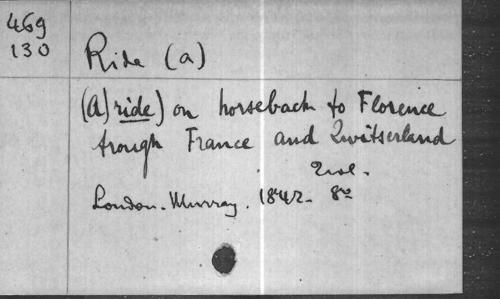 469
130
Ride (a)
(A) ride) on horseback to Florence
trough France and Zwitserland
2vol.
London. Murray. 1842. 8°